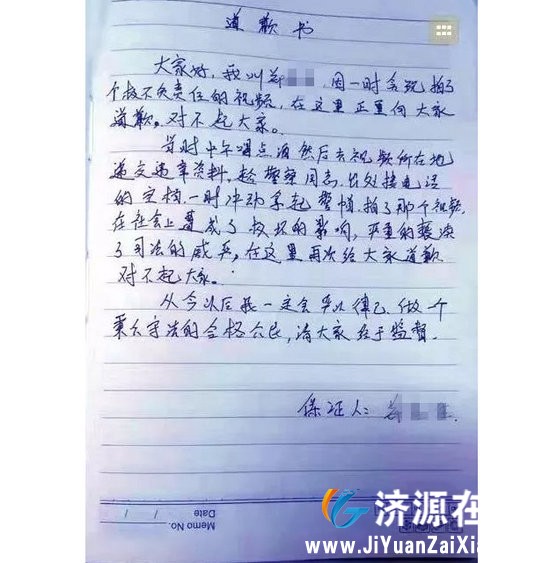 道歉书
大家好，我叫郑 因一时贪玩拍了
个极不负责任的视频，在这里正重向大家
道歉。对不起大家。
当时中午喝点酒然后去视频所在地
递交违章资料。趁警察同志出外接电话
的空档一时冲动拿起警帽，拍了那个视频，
在社会上造成了极坏的影响，严重的亵渎
了司法的威严，在这里再次给大家道歉
对不起大家。
从今以后我一定会严以律己、做个
秉公守法的合格公民，请大家给于监督。
保证人：
Memo No.
Date / /
济源在
www.JiYuanZaiXia